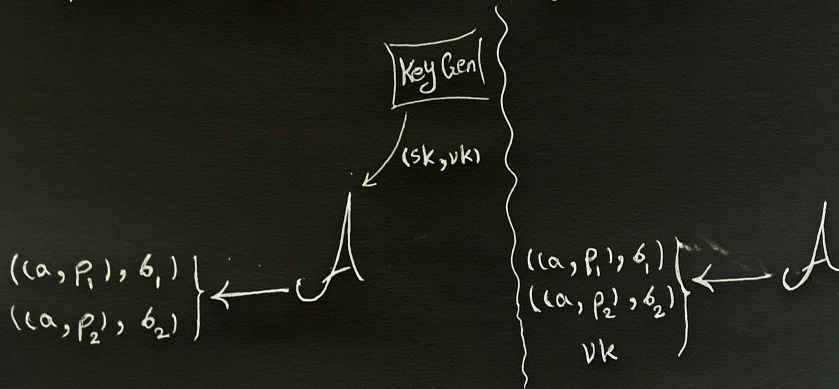 KeyGen
(sk,vk)
A
((a,p₁),6₁)
((a,p₂),6₂)
A
((a,p₁),6₁)
((a,p₂),6₂)
vk